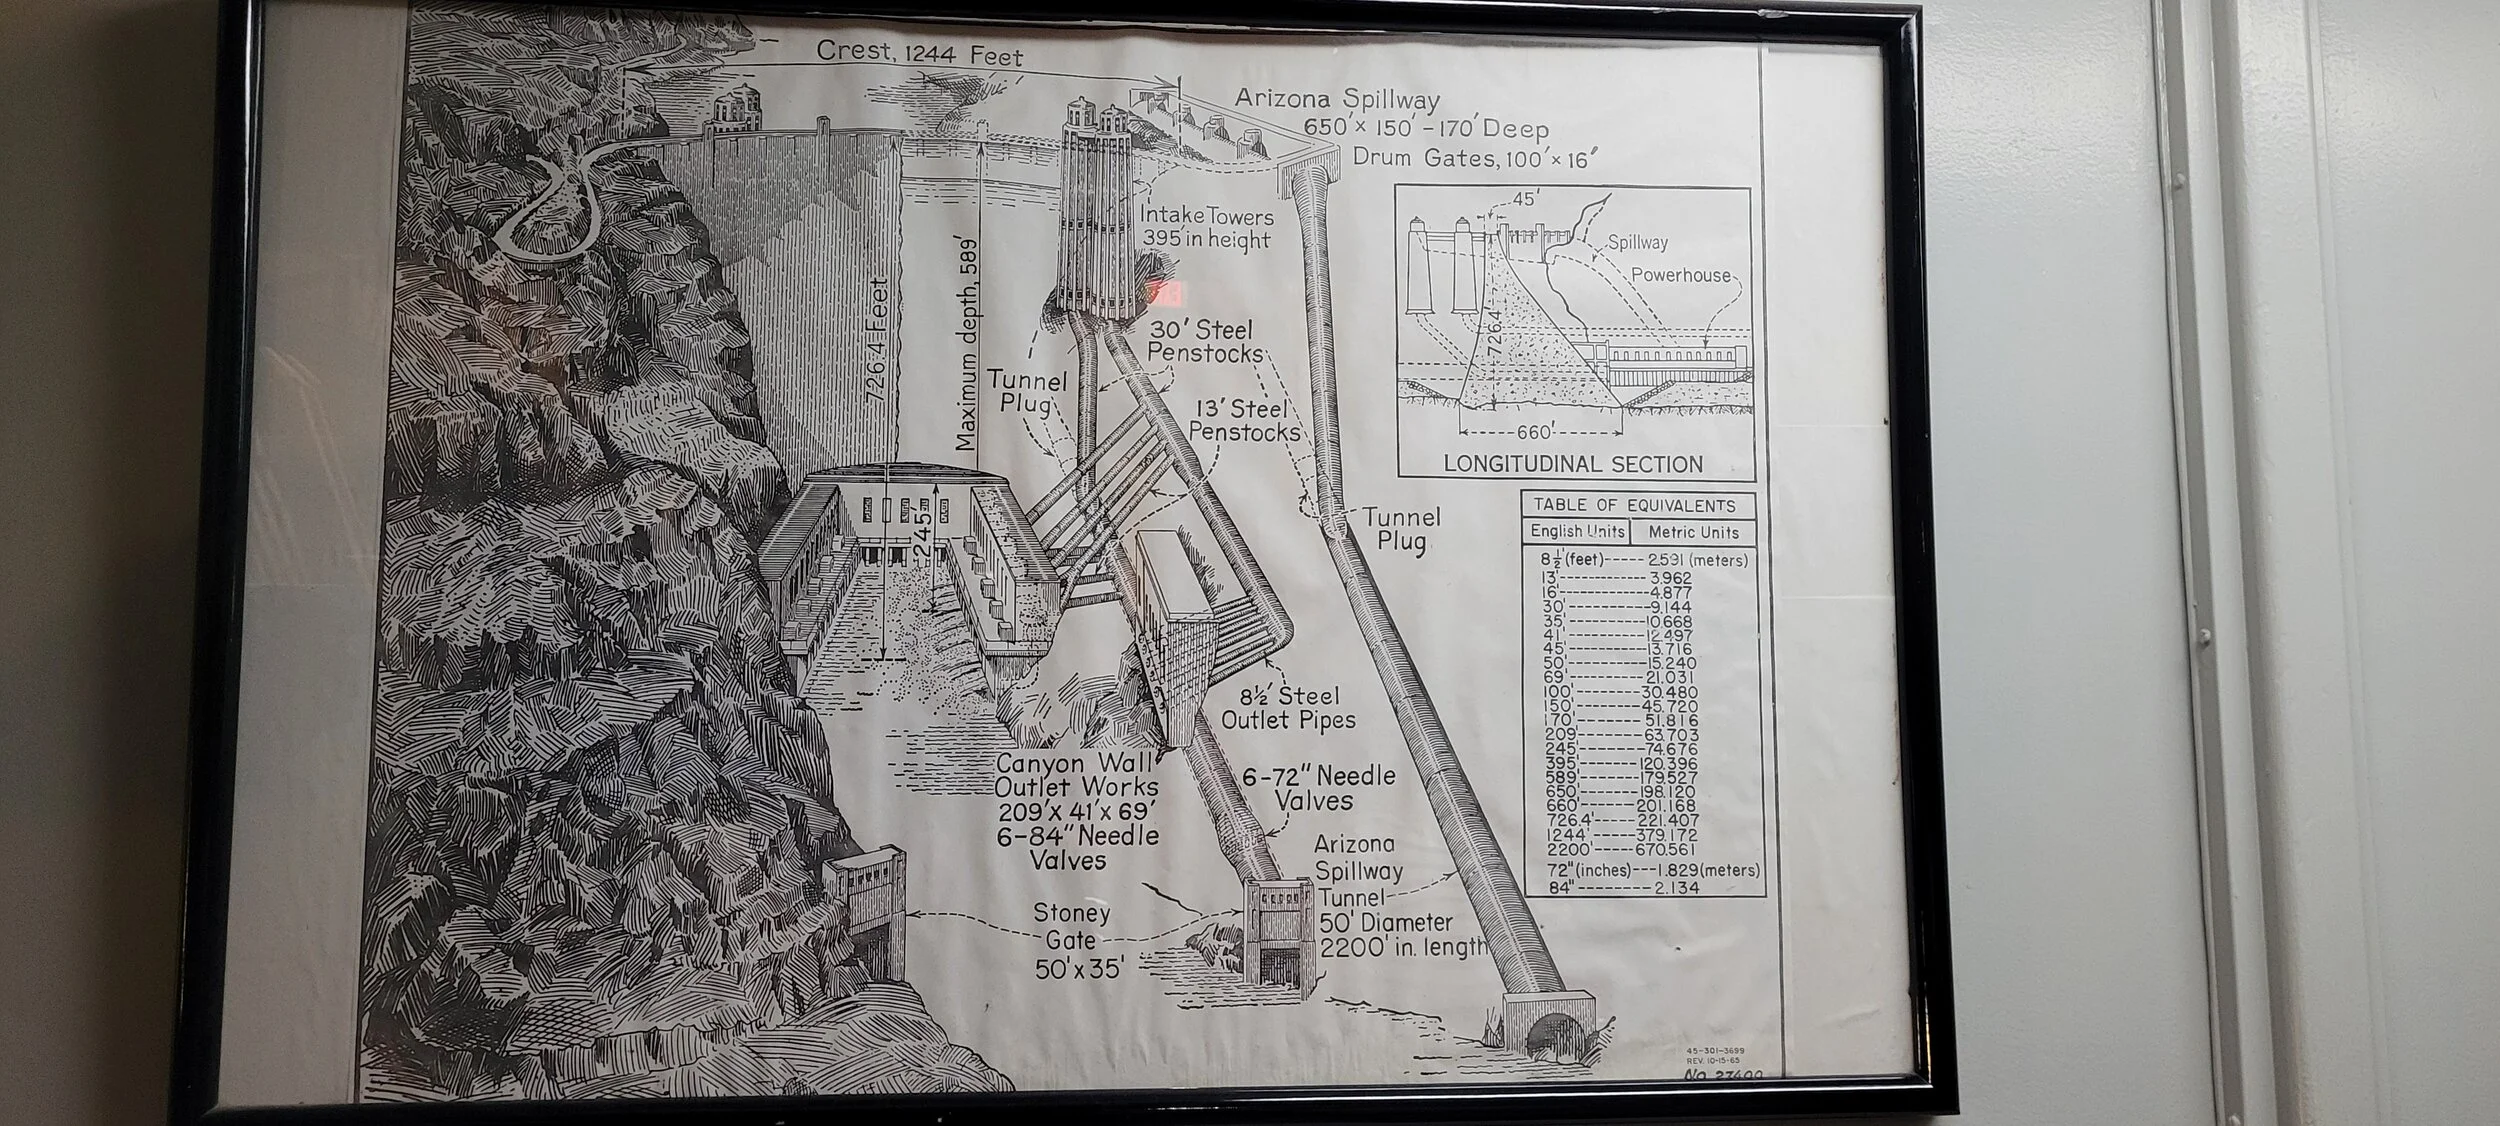 Crest, 1244 Feet
Arizona Spillway
650' x 150' - 170' Deep
Drum Gates, 100' x 16'
Intake Towers
395' in height
726.4 Feet
Maximum depth, 589'
30' Steel
Penstocks
Tunnel
Plug
13' Steel
Penstocks
245'
Tunnel
Plug
8½' Steel
Outlet Pipes
Canyon Wall
Outlet Works
209' x 41' x 69'
6-84" Needle
Valves
6-72" Needle
Valves
Arizona
Spillway
Tunnel
50' Diameter
2200' in. length
Stoney
Gate
50' x 35'
45'
Spillway
Powerhouse
726.4'
660'
LONGITUDINAL SECTION
TABLE OF EQUIVALENTS
English Units Metric Units
8½'(feet)-----2.591 (meters)
13'----------3.962
16'----------4.877
30'----------9.144
35'----------10.668
41'----------12.497
45'----------13.716
50'----------15.240
69'----------21.031
100'---------30.480
150'---------45.720
170'---------51.816
209'---------63.703
245'---------74.676
395'---------120.396
589'---------179.527
650'---------198.120
660'---------201.168
726.4'-------221.407
1244'--------379.172
2200'--------670.561
72"(inches)---1.829(meters)
84"----------2.134
45-301-3699
REV. 10-15-65
No.